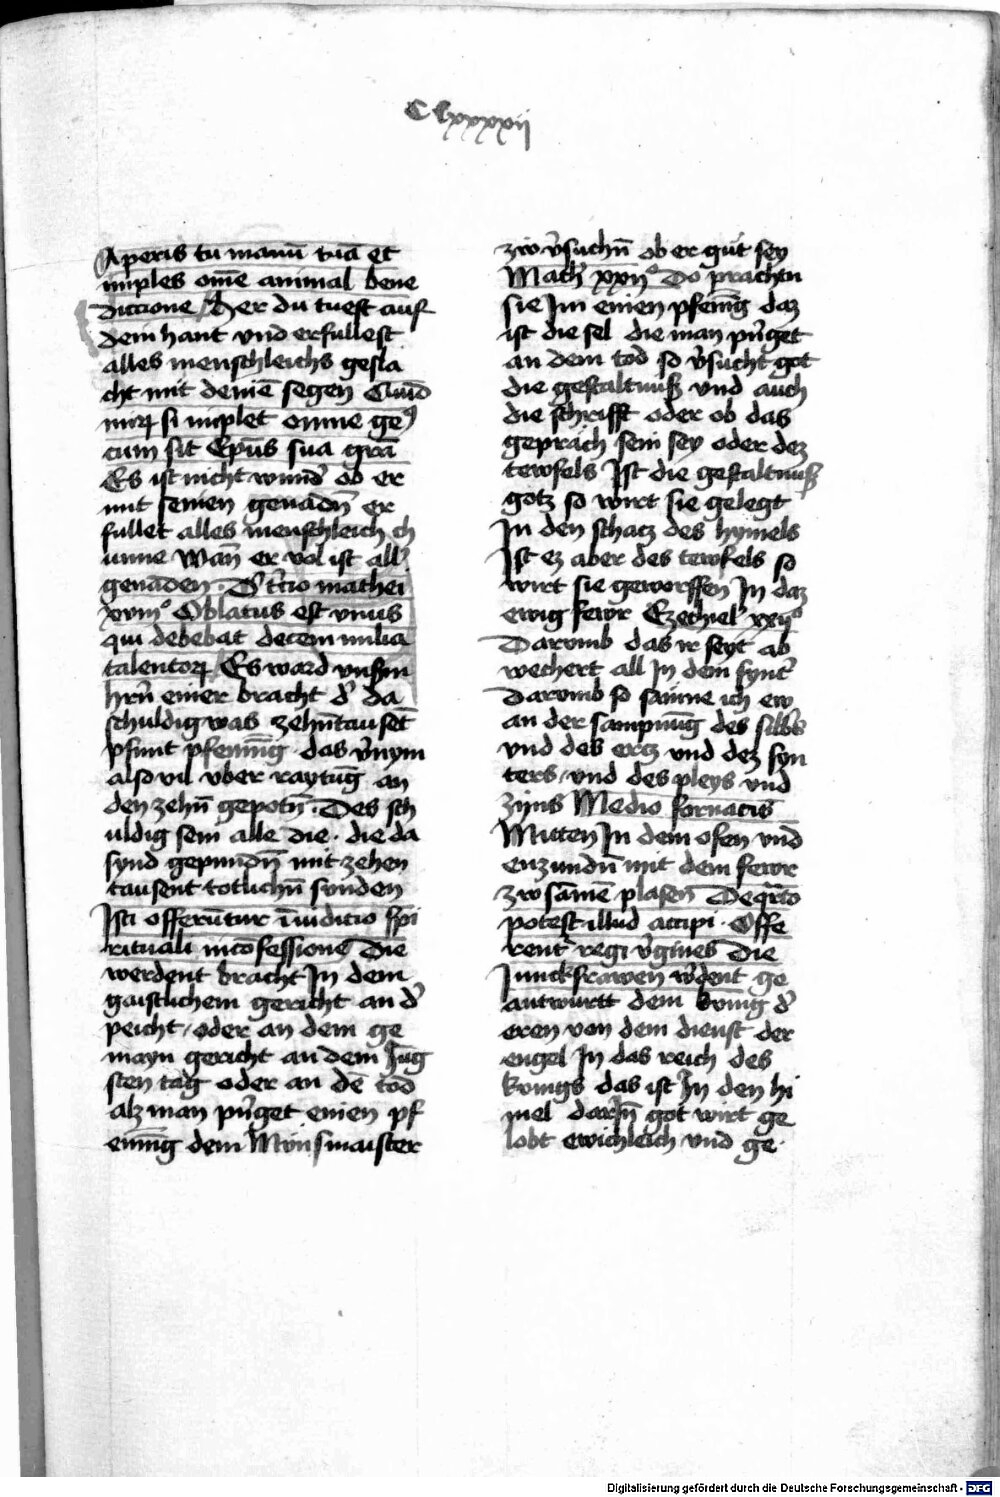 Clxxxxij
Aperis tu manū tuā et
imples om̄e animal bene
diccione / Her du tuest auf
dein hant vnd erfullest
alles menschleichs gesla
cht mit deinē segen
si implet omne ge
cum sit Ep̄us sua gr̄a
Es ist nicht wund' ob er
mit seinen genādn̄ er
fullet alles menschleich ch
unne Wan̄ er vol ist all'
genaden. mathei
xviii° Oblatus est vnus
qui debebat decem milia
talentoꝝ Es ward vnserm
hrn̄ einer bracht d' da
schuldig was zehn̄tausēt
pfunt pfennīg das v'nym
also vil vber raytūg an
den zehn̄ gepotn̄. Des sch
uldig sein alle die. die da
synd gepundn̄ mit zehen
tausent totlichn̄ synden
Isti offerūtur ī iudicio sp̄i
rituali in cōfessione Die
werdent bracht In dem
gaistlichem gericht an d'
peicht / oder an dem ge
mayn gericht an dem Jūg
sten tag oder an dē tōd
alz man pr̄iget einen pf
ennīg dem Mūnsmaister
zw v'suchn̄ ob er gut sey
Math' xxii° Do prachtn
sie Im einen pfennīg daz
ist die sel die man pr̄iget
an dem tod so v'sucht got
die gestaltnuß vnd auch
die schrifft oder ob das
geprāch sein sey oder dez
tewfels Ist die gestaltnuß
gotz so wirt sie gelegt
In den schatz des hymels
Ist ez aber des tewfels so
wirt sie geworffen In daz
ewig fewr Ezechiel' xxii°
Darvmb das ir seyt ab
wechert all In dem synt'
Darvmb so samne ich ew
an der sampnūg des silb's
vnd des ercz vnd dez syn
ters / vnd des pleys vnd
zyns Medio fornacis
Mitten In dem ofen vnd
enzundn̄ mit dem fewr
zw samē plasen
potest illud accipi. Offe
rent' regi v'gines Die
Junckfrawen w'dent ge
antwurtt dem kōnig d'
eren von dem dienst der
engel In das reich des
konigs das ist In den hi
mel darīn got wirt ge
lobt ewichleich vnd ge.
Digitalisierung gefördert durch die Deutsche Forschungsgemeinschaft - DFG